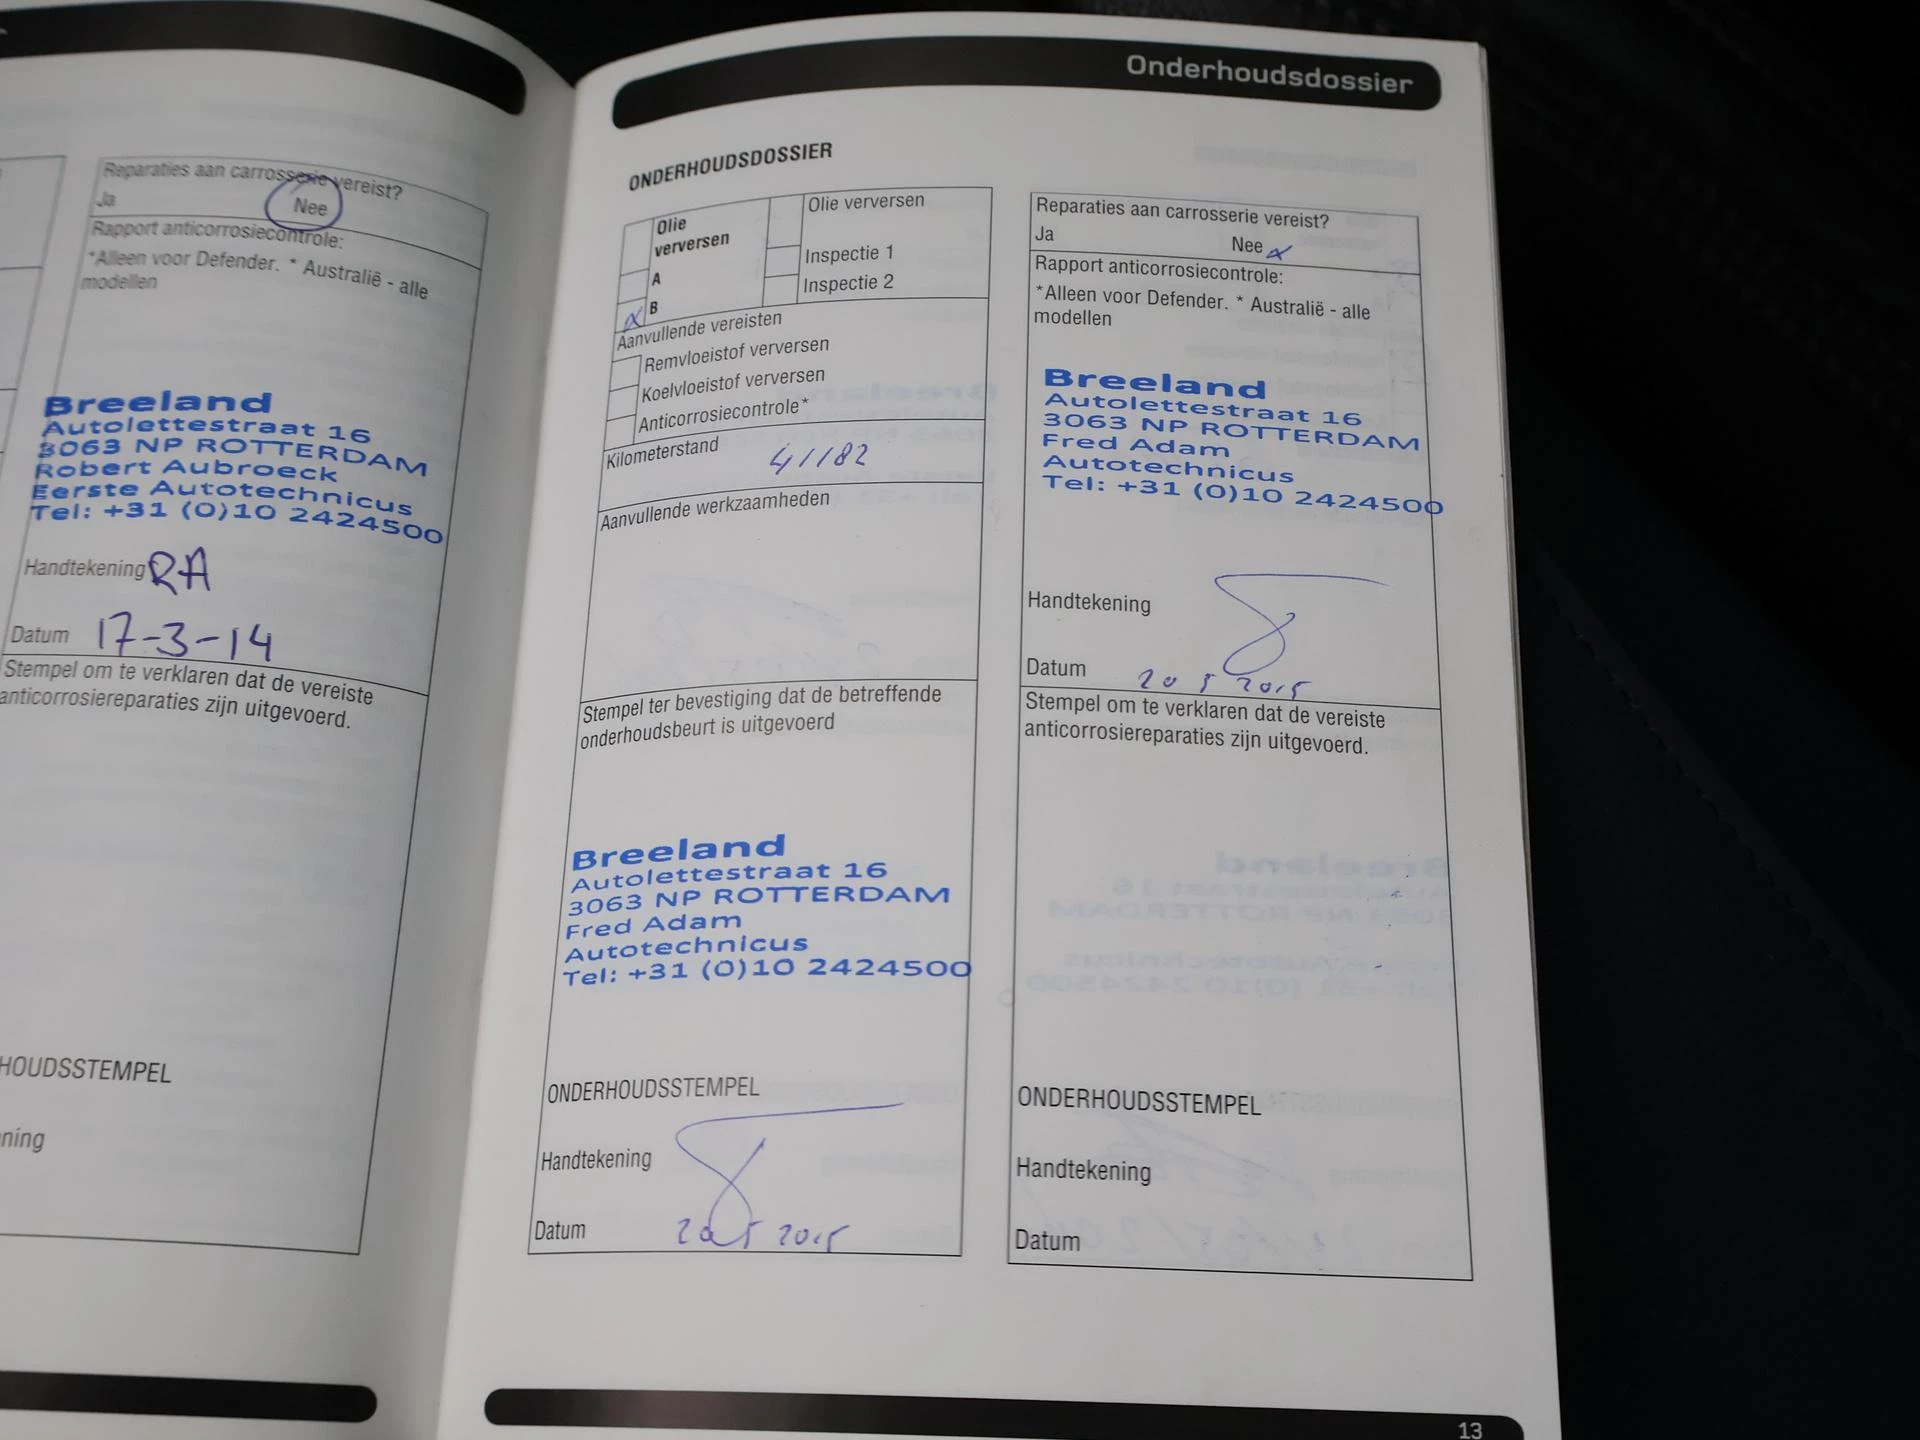 Reparaties aan carrosserie vereist?
Ja Nee
Rapport anticorrosiecontrole:
*Alleen voor Defender. * Australië - alle
modellen
Breeland
Autolettestraat 16
3063 NP ROTTERDAM
Robert Aubroeck
Eerste Autotechnicus
Tel: +31 (0)10 2424500
Handtekening RA
Datum 17-3-14
Stempel om te verklaren dat de vereiste
anticorrosiereparaties zijn uitgevoerd.
HOUDSSTEMPEL
ning
Onderhoudsdossier
ONDERHOUDSDOSSIER
Olie
verversen
A
x B
Olie verversen
Inspectie 1
Inspectie 2
Aanvullende vereisten
Remvloeistof verversen
Koelvloeistof verversen
Anticorrosiecontrole*
Kilometerstand 41182
Aanvullende werkzaamheden
Stempel ter bevestiging dat de betreffende
onderhoudsbeurt is uitgevoerd
Breeland
Autolettestraat 16
3063 NP ROTTERDAM
Fred Adam
Autotechnicus
Tel: +31 (0)10 2424500
ONDERHOUDSSTEMPEL
Handtekening
Datum 20 5 2015
Reparaties aan carrosserie vereist?
Ja Nee x
Rapport anticorrosiecontrole:
*Alleen voor Defender. * Australië - alle
modellen
Breeland
Autolettestraat 16
3063 NP ROTTERDAM
Fred Adam
Autotechnicus
Tel: +31 (0)10 2424500
Handtekening
Datum 20 5 2015
Stempel om te verklaren dat de vereiste
anticorrosiereparaties zijn uitgevoerd.
ONDERHOUDSSTEMPEL
Handtekening
Datum
13